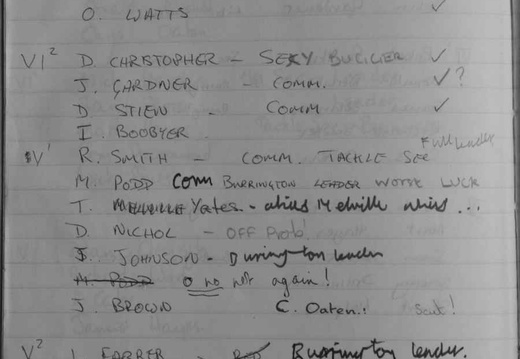 O. WATTS ✓
VI² D. CHRISTOPHER – SEXY BUGGER ✓
J. GARDNER – COMM. ✓?
D STIEN – COMM ✓
I. BOOBYER.
IV' R. SMITH – COMM. TACKLE SEC Full leader
M. PODD COMM BURRINGTON LEADER WORSE LUCK
T. MELVILLE Yates. – alias Melville alias ...
D. NICHOL – OFF Prob!
S. JOHNSON – Burrington leader
M. PODD o no not again!
J. BROWN C. Oaten.: Scout!
V² J. FARRER – Burrington leader.